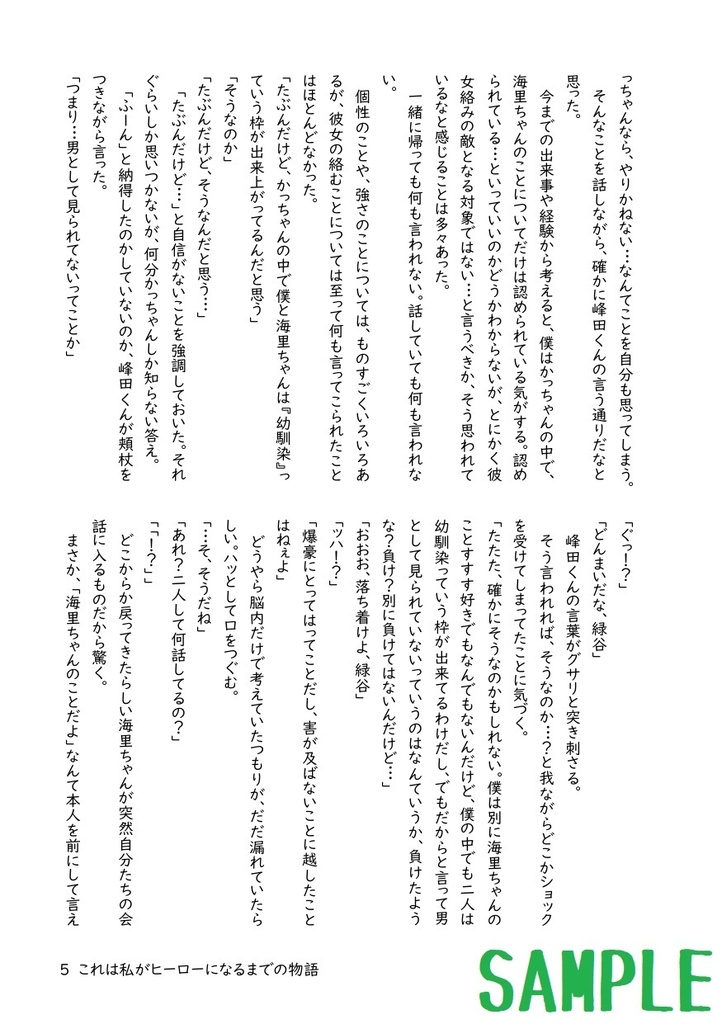 っちゃんなら、やりかねない…なんてことを自分も思ってしまう。
そんなことを話しながら、確かに峰田くんの言う通りだなと
思った。
今までの出来事や経験から考えると、僕はかっちゃんの中で、
海里ちゃんのことについてだけは認められている気がする。認め
られている…といっていいのかどうかわからないが、とにかく彼
女絡みの敵となる対象ではない…と言うべきか、そう思われて
いるなと感じることは多々あった。
一緒に帰っても何も言われない。話していても何も言われな
い。
個性のことや、強さのことについては、ものすごくいろいろあ
るが、彼女の絡むことについては至って何も言ってこられたこと
はほとんどなかった。
「たぶんだけど、かっちゃんの中で僕と海里ちゃんは『幼馴染』っ
ていう枠が出来上がってるんだと思う」
「そうなのか」
「たぶんだけど、そうなんだと思う…」
「たぶんだけど…」と自信がないことを強調しておいた。それ
ぐらいしか思いつかないが、何分かっちゃんしか知らない答え。
「ふーん」と納得したのかしていないのか、峰田くんが頬杖を
つきながら言った。
「つまり…男として見られてないってことか」
「ぐっ！？」
「どんまいだな、緑谷」
峰田くんの言葉がグサリと突き刺さる。
そう言われれば、そうなのか…？と我ながらどこかショック
を受けてしまってたことに気づく。
「たたた、確かにそうなのかもしれない。僕は別に海里ちゃんの
ことすすす好きでもなんでもないんだけど、僕の中でも二人は
幼馴染っていう枠が出来てるわけだし、でもだからと言って男
として見られていないっていうのはなんていうか、負けたよう
な？負け？別に負けてはないんだけど…」
「おおお、落ち着けよ、緑谷」
「ッハ！？」
「爆豪にとってはってことだし、害が及ばないことに越したこと
はねぇよ」
どうやら脳内だけで考えていたつもりが、だだ漏れていたら
しい。ハッとして口をつぐむ。
「…そ、そうだね」
「あれ？二人して何話してるの？」
「「！？」」
どこからか戻ってきたらしい海里ちゃんが突然自分たちの会
話に入るものだから驚く。
まさか、「海里ちゃんのことだよ」なんて本人を前にして言え
5 これは私がヒーローになるまでの物語
SAMPLE